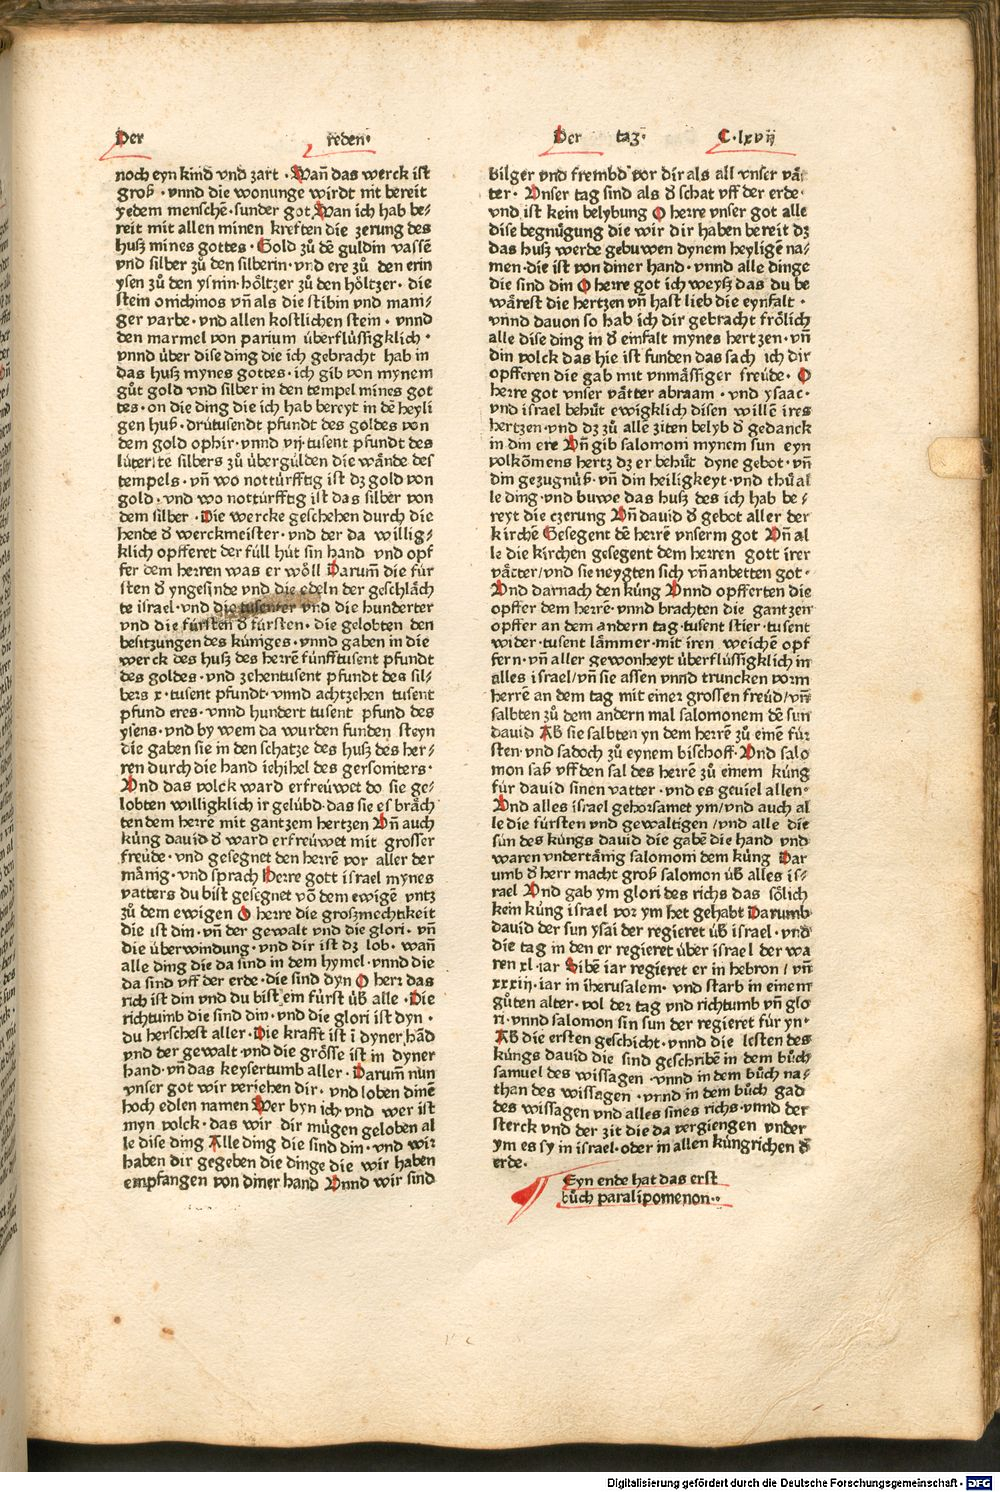 Der reden·
Der tag· C·lxvij
noch eyn kind vnd zart · Wañ das werck ist
groß · vnnd die wonunge wirdt nit bereit
yedem menschē · sunder got Wan ich hab be⸗
reit mit allen minen kreften die zerung des
husz mines gottes · Gold zů dē guldin vassē
vnd silber zů den silberin · vnd ere zů den erin
ysen zů den ysnin · höltzer zů den höltzer · die
stein onichinos vñ als die stibin vnd mani⸗
ger varbe · vnd allen kostlichen stein · vnnd
den marmel von parium überflüssigklich ·
vnnd über dise ding die ich gebracht hab in
das husz mynes gottes · ich gib von mynem
gůt gold vnd silber in den tempel mines got
tes · on die ding die ich hab bereyt in dē heyli
gen huß · drütusendt pfundt des goldes von
dem gold ophir · vnnd vij tusent pfundt des
lüterste silbers zů übergülden die wände des
tempels · vñ wo notturfftig ist dz gold von
gold · vnd wo notturfftig ist das silber von
dem silber · Die wercke geschehen durch die
hende d̄ werckmeister · vnd der da willig⸗
klich opfferet der füll hüt sin hand vnd opf
fer dem herren was er wöll Darum̄ die für
sten d̄ yngesinde vnd die edeln der geschläch
te israel · vnd die tusenter vnd die hunderter
vnd die fürsten d̄ fürsten · die gelobten den
besitzungen des küniges · vnnd gaben in die
werck des husz des herrē fünfftusent pfundt
des goldes · vnd zehentusent pfundt des sil⸗
bers x · tusent pfundt · vnnd achtzehen tusent
pfund eres · vnnd hundert tusent pfund des
ysens · vnd by wem da wurden funden steyn
die gaben sie in den schatze des husz des her⸗
ren durch die hand iehihel des gersoniters ·
Vnd das volck ward erfreüwet do sie ge⸗
lobten willigklich ir gelübd · das sie es bräch
ten dem herrē mit gantzem hertzen Vñ auch
kůng dauid d̄ ward erfreüwet mit grosser
freüde · vnd gesegnet den herrē vor aller der
mänig · vnd sprach Herre gott israel mynes
vatters du bist gesegnet vō dem ewigē vntz
zů dem ewigen O herre die groszmechtikeit
die ist din · vñ der gewalt vnd die glori · vñ
die überwindung · vnd dir ist dz lob · wañ
alle ding die da sind in dem hymel · vnnd die
da sind vff der erde · die sind dyn O herr das
rich ist din vnd du bist ein fürst üb̄ alle · Die
richtumb die sind din · vnd die glori ist dyn ·
du herschest aller · Die krafft ist ī dyner hād
vnd der gewalt · vnd die grösse ist in dyner
hand · vñ das keysertumb aller · Darum̄ nun
vnser got wir veriehen dir · vnd loben dinē
hoch edlen namen Wer byn ich · vnd wer ist
myn volck · das wir dir mügen geloben al
le dise ding Alle ding die sind din · vnd wir
haben dir gegeben die dinge die wir haben
empfangen von diner hand Vnnd wir sind
bilger vnd frembd vor dir als all vnser vät
ter · Vnser tag sind als d̄ schat vff der erde ·
vnd ist kein belybung O herre vnser got alle
dise begnügung die wir dir haben bereit dz
das husz werde gebuwen dynem heyligē na⸗
men · die ist von diner hand · vnnd alle dinge
die sind din O herre got ich weysz das du be
wärest die hertzen vñ hast lieb die eynfalt ·
vnnd dauon so hab ich dir gebracht frölich
alle dise ding in d̄ einfalt mynes hertzen · vñ
din volck das hie ist funden das sach ich dir
opfferen die gab mit vnmässiger freüde · O
herre got vnser vätter abraam · vnd ysaac ·
vnd israel behüt ewigklich disen willē ires
hertzen · vnd dz zů allē ziten belyb d̄ gedanck
in din ere Vñ gib salomoni mynem sun eyn
volkōmens hertz dz er behüt dyne gebot · vñ
din gezugnüß · vñ din heiligkeyt · vnd thů al
le ding · vnd buwe das husz des ich hab be⸗
reyt die czerung Vñ dauid d̄ gebot aller der
kirchē Gesegent dē herrē vnserm got Vñ al
le die kirchen gesegent dem herren gott irer
vätter / vnd sie neygten sich vñ anbetten got ·
Vnd darnach den kůng Vnnd opfferten die
opffer dem herrē · vnnd brachten die gantzen
opffer an dem andern tag · tusent stier · tusent
wider · tusent lämmer · mit iren weichē opf
fern · vñ aller gewonheyt überflüssigklich in
alles israel / vñ sie assen vnnd truncken vorm
herrē an dem tag mit einer grossen freüd / vñ
salbten zů dem andern mal salomonem dē sun
dauid Ab̄ sie salbten yn dem herrē zů einē für
sten · vnd sadoch zů eynem bischoff · Vnd salo
mon saß vff den sal des herrē zů einem kůng
für dauid sinen vatter · vnd es geuiel allen ·
Vnd alles israel gehorsamet ym / vnd auch al
le die fürsten vnd gewaltigen / vnd alle die
sün des kůngs dauid die gabē die hand vnd
waren vndertänig salomoni dem kůng Dar
umb d̄ herr macht groß salomon üb̄ alles is⸗
rael Vnd gab ym glori des richs das sölich
kein kůng israel vor ym het gehabt Darumb
dauid der sun ysai der regieret üb̄ israel · vnd
die tag in den er regieret über israel der wa
ren xl · iar Sibē iar regieret er in hebron / vñ
xxxiij · iar in iherusalem · vnd starb in einem
gůten alter · vol der tag vnd richtumb vñ glo
ri · vnnd salomon sin sun der regieret für yn ·
Ab̄ die ersten geschicht · vnnd die lesten des
kůngs dauid die sind geschribē in dem bůch
samuel des wissagen · vnnd in dem bůch na⸗
than des wissagen · vnnd in dem bůch gad
des wissagen vnd alles sines richs · vnnd der
sterck vnd der zit die da vergiengen vnder
ym es sy in israel · oder in allen kůngrichen d̄
erde ·
Eyn ende hat das erst
bůch paralipomenon ··
Digitalisierung gefördert durch die Deutsche Forschungsgemeinschaft · DFG